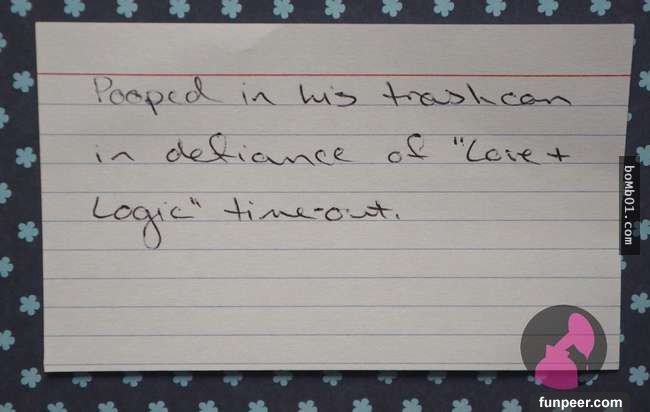 Pooped in his trashcan
in defiance of "Love +
Logic" time-out.
boMb01.com
funpeer.com